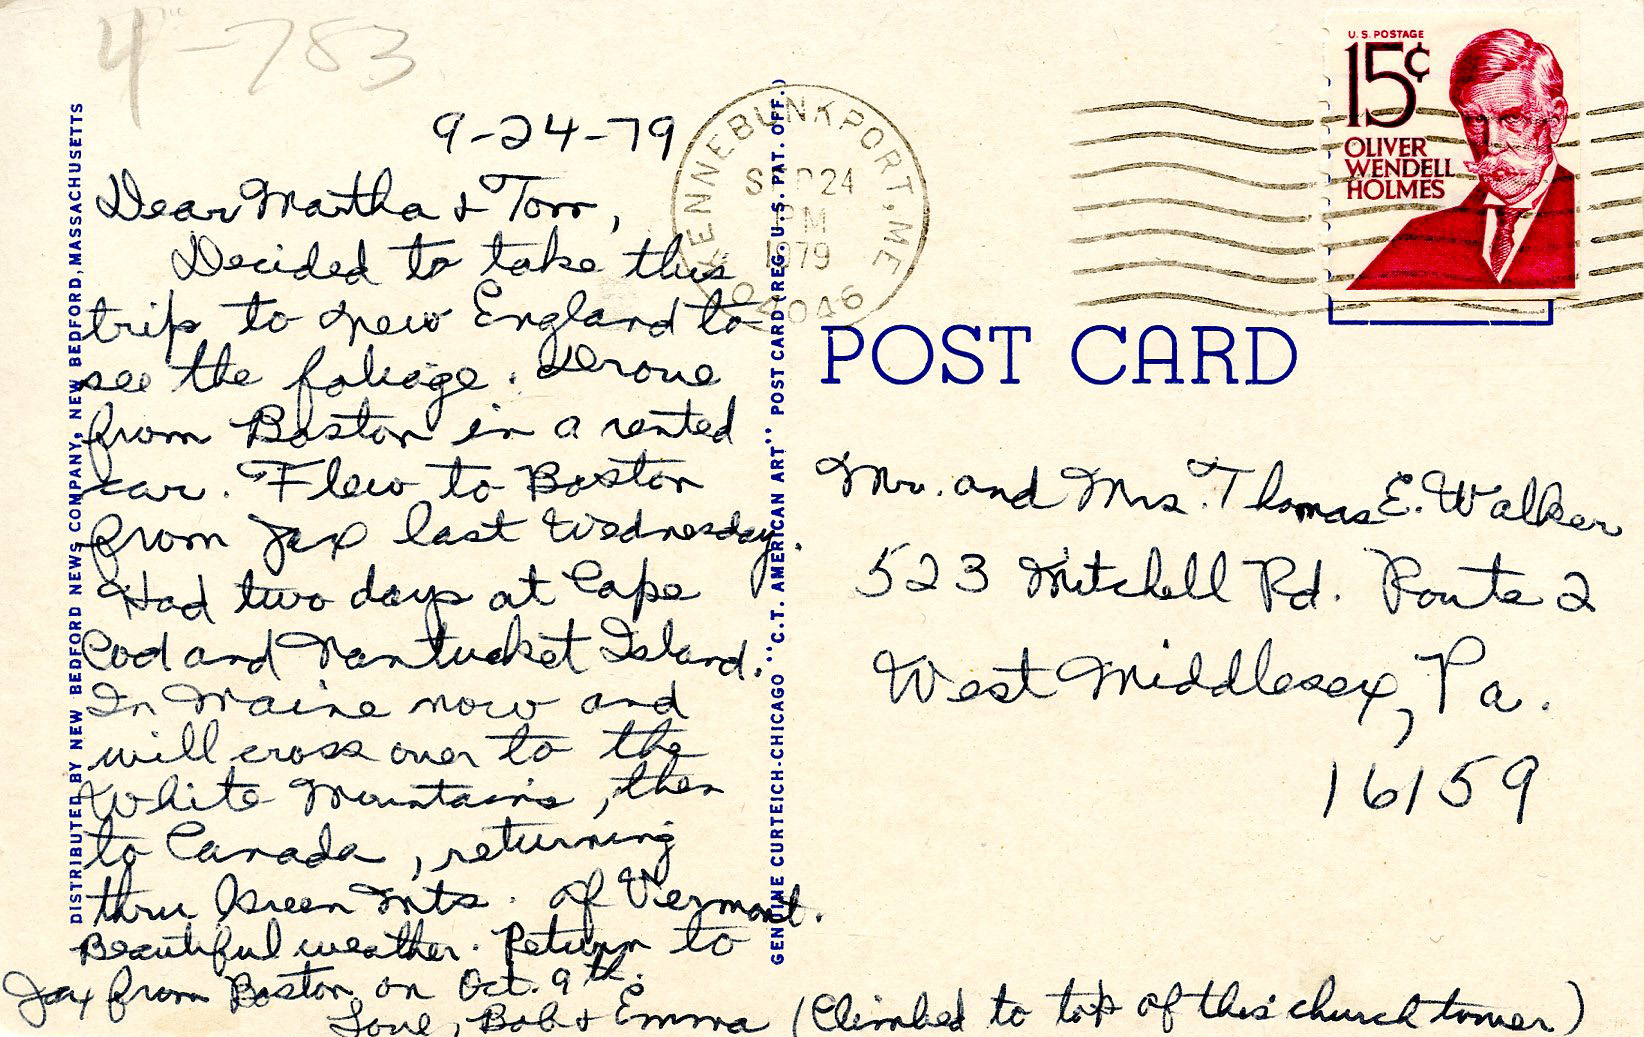 4-783
9-24-79
Dear Martha & Tom,
Decided to take this
trip to New England to
see the foliage. Drove
from Boston in a rented
car. Flew to Boston
from Jax last Wednesday.
Had two days at Cape
Cod and Nantucket Island.
In Maine now and
will cross over to the
White Mountains, then
to Canada, returning
thru Green Mts. of Vermont.
Beautiful weather. Return to
Jax from Boston on Oct. 9th.
Love, Bob & Emma (Climbed to top of this church tower.)
DISTRIBUTED BY NEW BEDFORD NEWS COMPANY, NEW BEDFORD, MASSACHUSETTS
GENUINE CURTEICH-CHICAGO "C.T. AMERICAN ART" POST CARD (REG. U.S. PAT. OFF.)
KENNEBUNKPORT, ME
SEP 24
PM
1979
04046
U.S. POSTAGE
15¢
OLIVER
WENDELL
HOLMES
POST CARD
Mr. and Mrs. Thomas E. Walker
523 Mitchell Rd. Route 2
West Middlesex, Pa.
16159